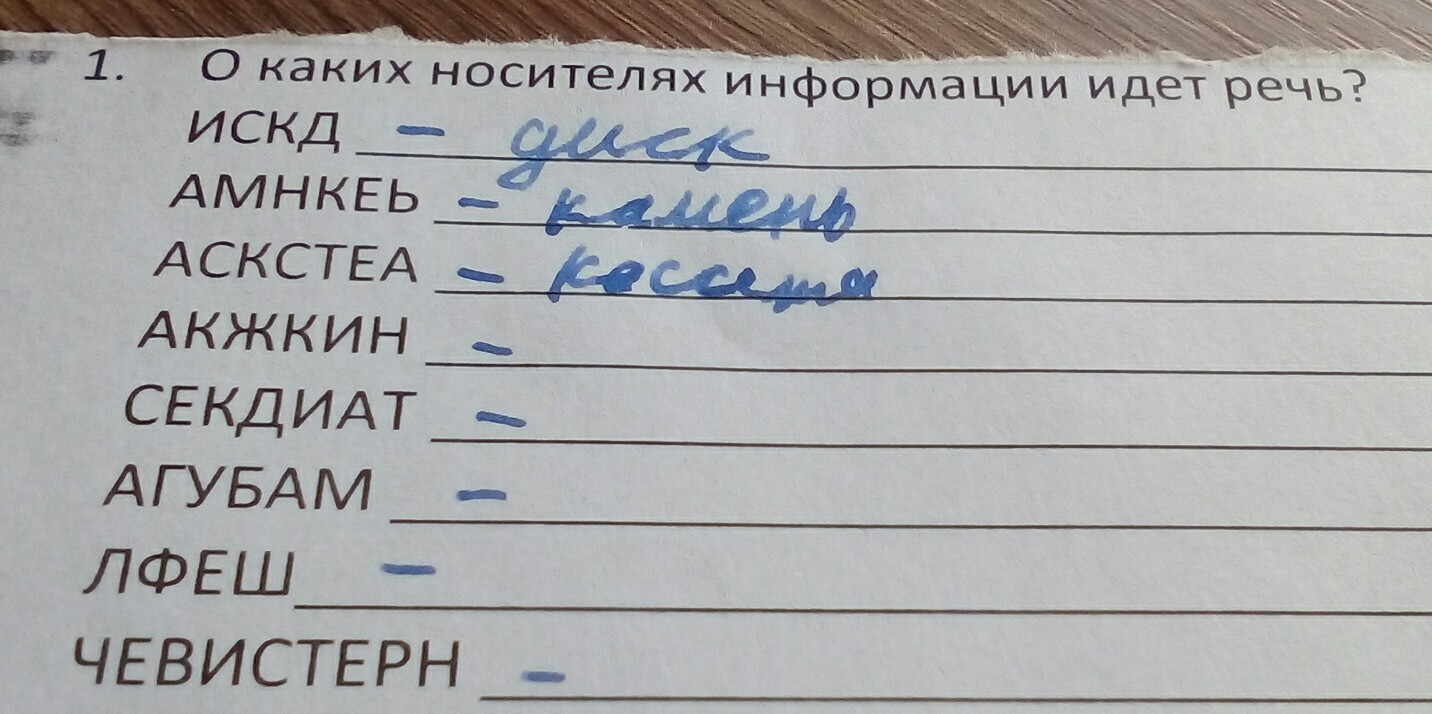 1. О каких носителях информации идет речь?
ИСКД - диск
АМНКЕЬ - камень
АСКСТЕА - кассета
АКЖКИН -
СЕКДИАТ -
АГУБАМ -
ЛФЕШ -
ЧЕВИСТЕРН -